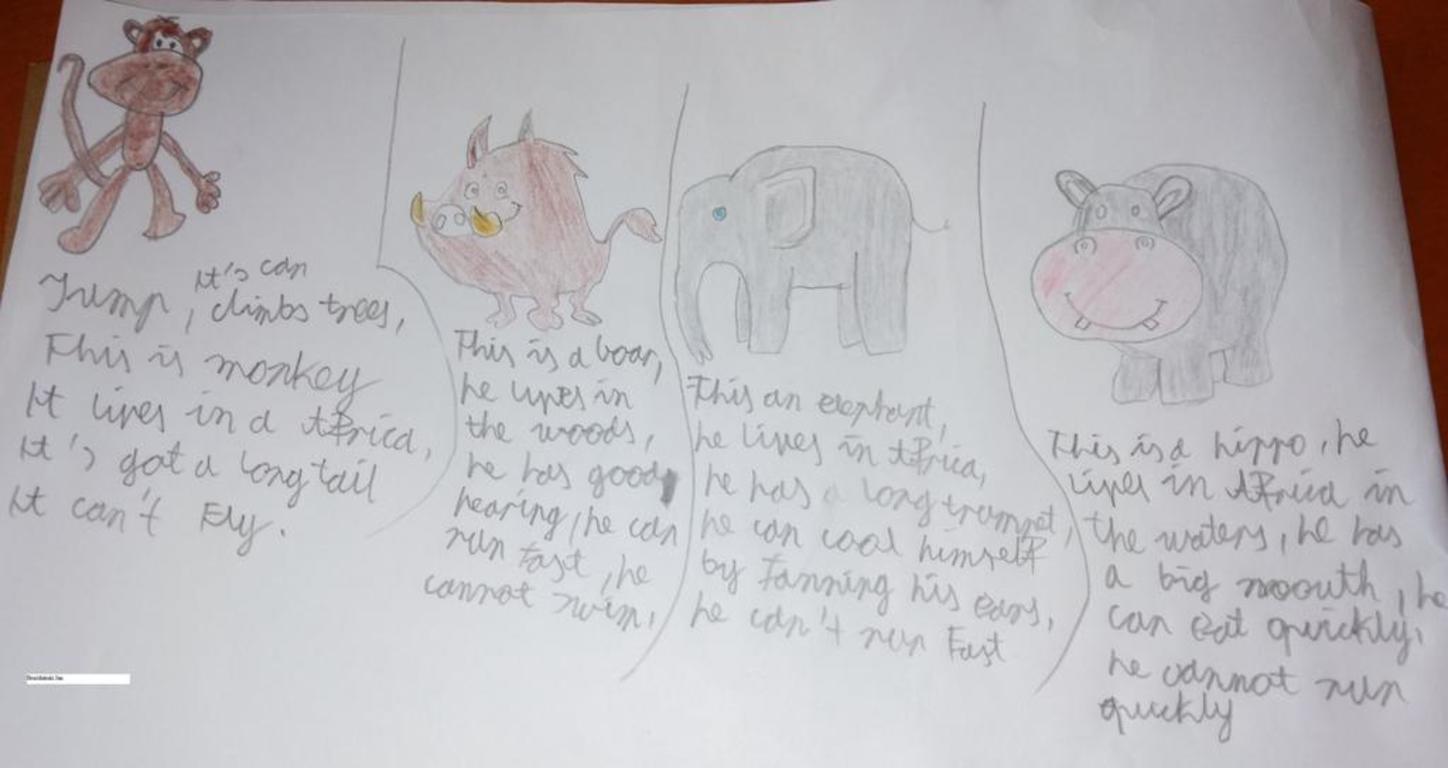 It's can
Jump, climbs trees,
This is monkey
It lives in a Africa,
It's got a long tail
It can't Fly.
This is a boar,
he lives in
the woods,
he has good
hearing, he can
run fast, he
cannot swim,
This an elephant,
he lives in Africa,
he has a long trumpet,
he can cool himself
by Fanning his ears,
he can't run Fast
This is a hippo, he
lives in Africa in
the waters, he has
a big moouth, he
can eat quickly,
he cannot run
quickly